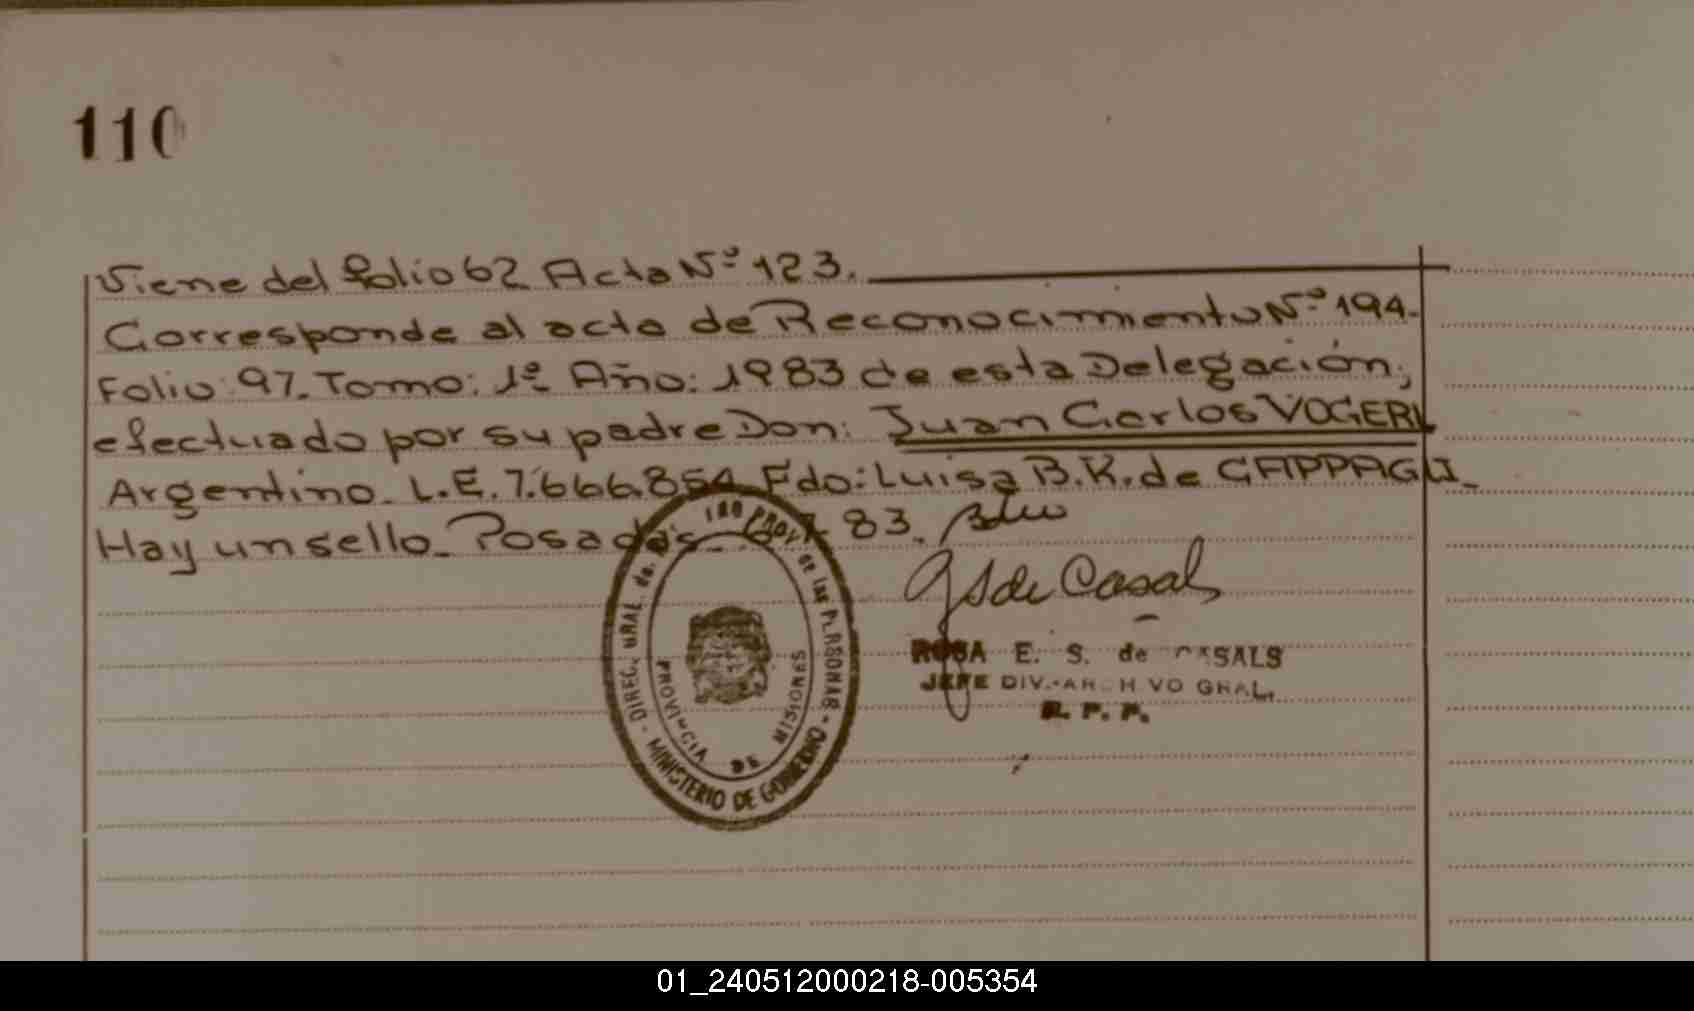 110
Viene del folio 62 Acta Nº 123.
Corresponde al acta de Reconocimiento Nº 194.
Folio: 97. Tomo: 1º Año: 1983 de esta Delegación,
efectuado por su padre Don: Juan Carlos VOGERL
Argentino. L.E. 7.666.854 Fdo: Luisa B.K. de
Hay un sello. Posadas 83.
de Casals
ROSA E. S. de CASALS
JEFE DIV. ARCHIVO GRAL.
R. P. P.
DIREC. GRAL. de REG PROV. de las PERSONAS
PROVINCIA DE MISIONES
MINISTERIO DE GOBIERNO
01_240512000218-005354